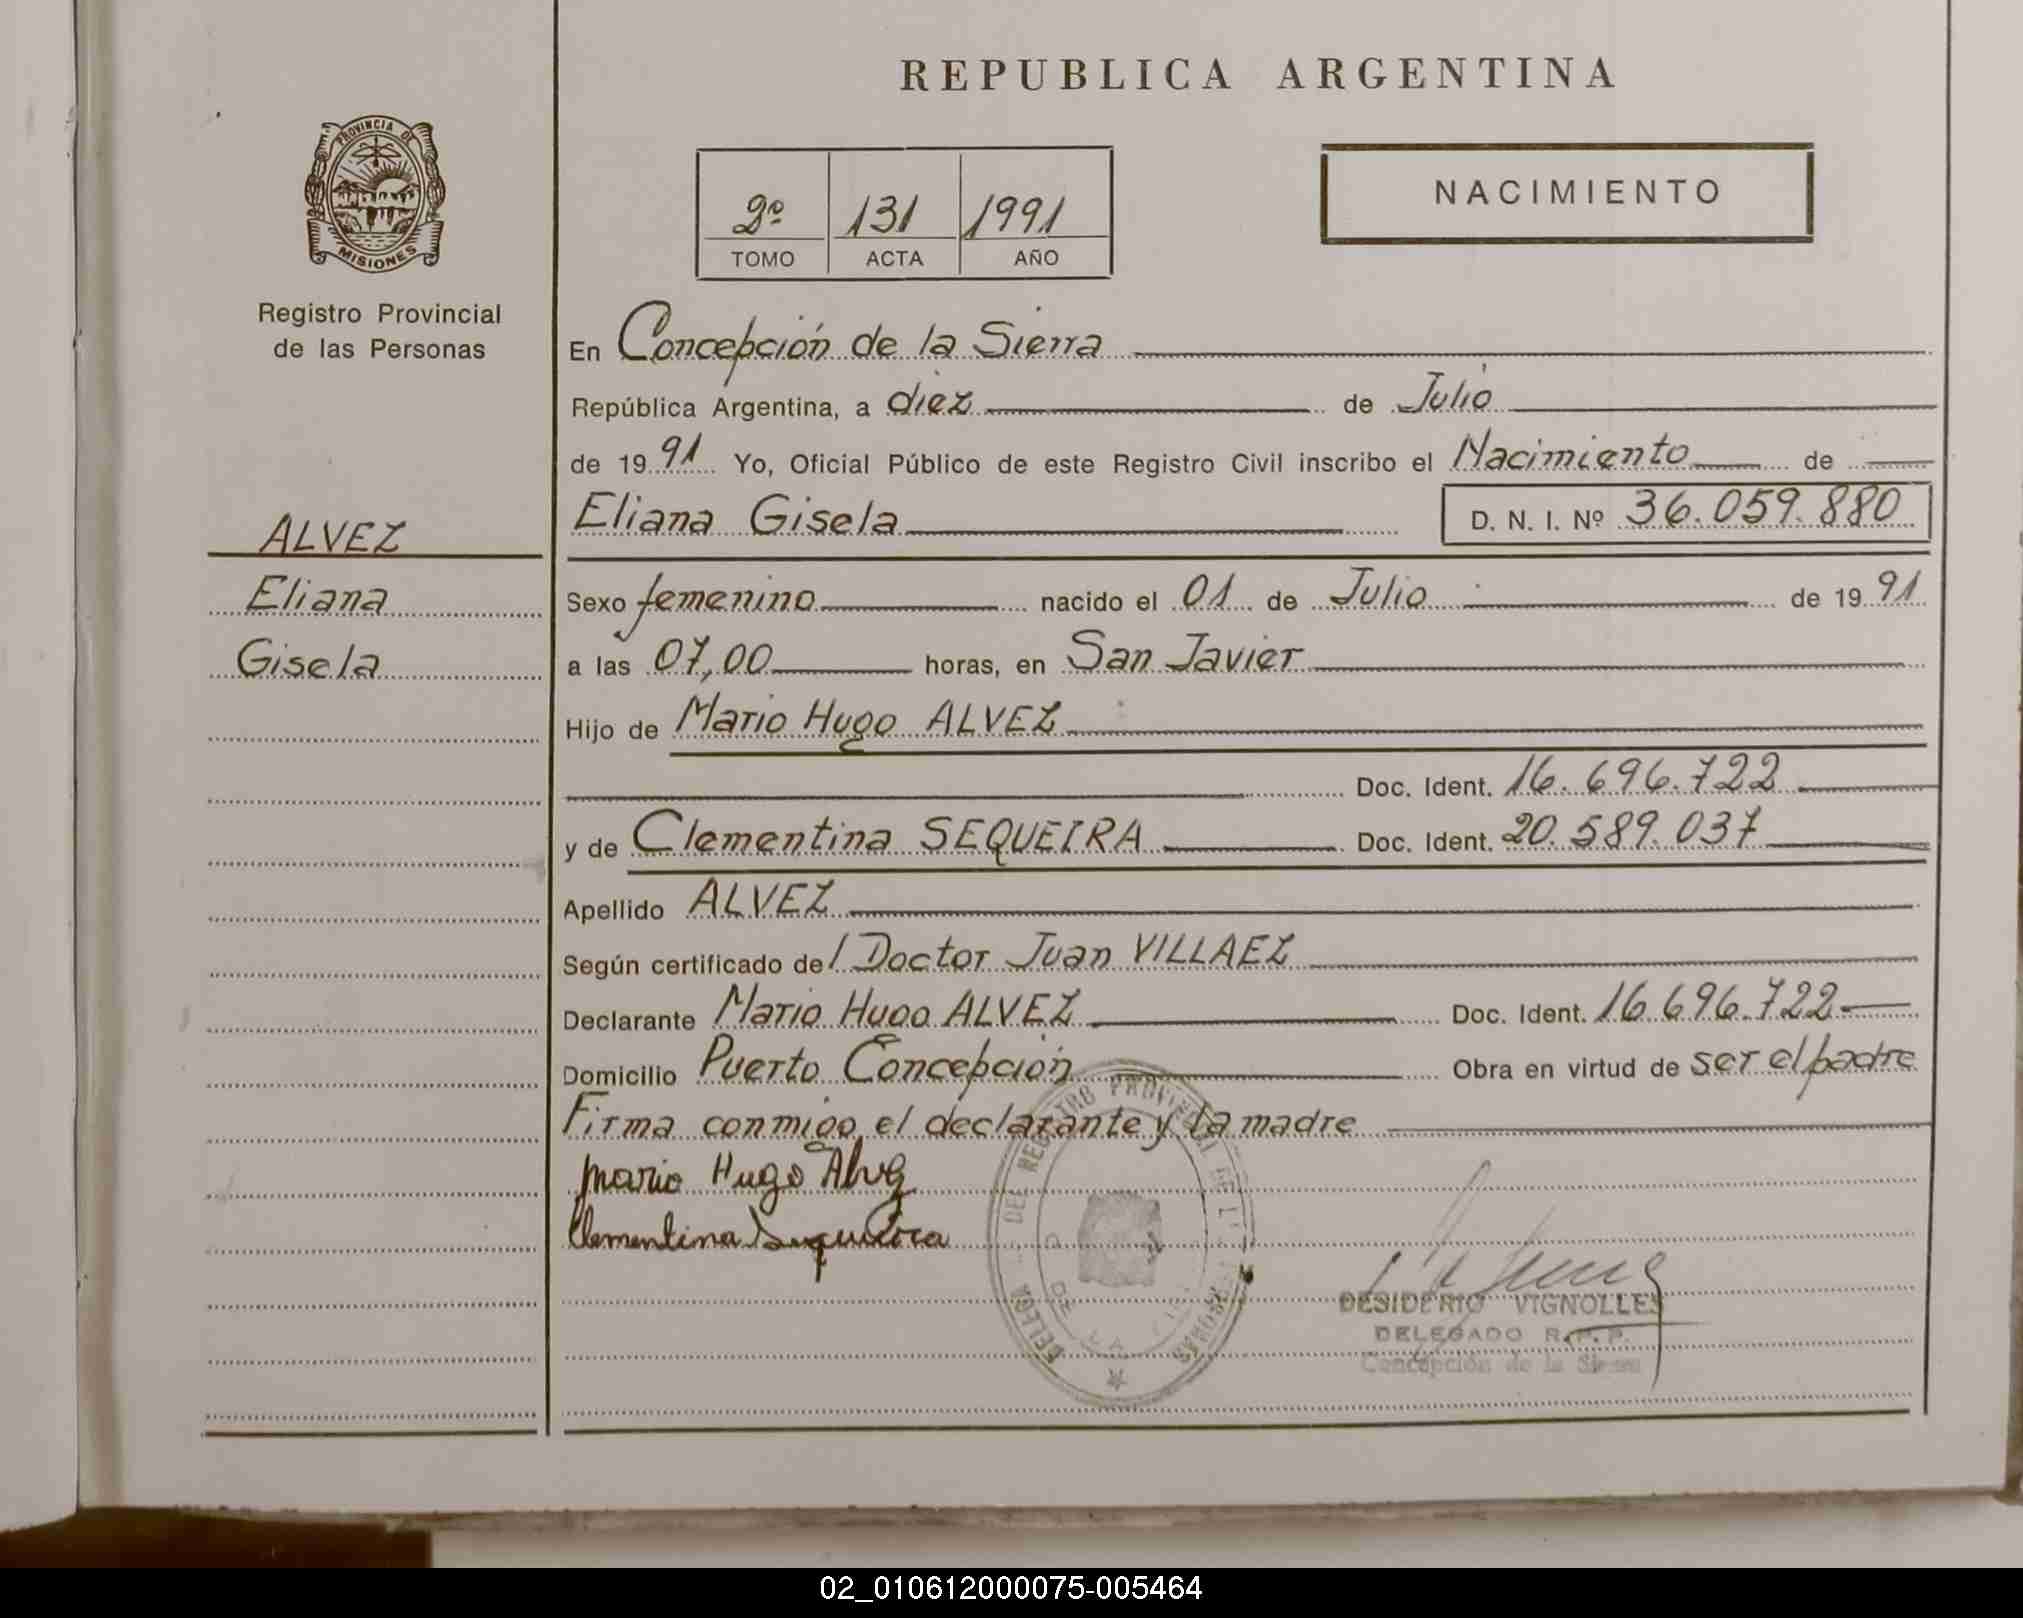 REPUBLICA ARGENTINA
PROVINCIA DE
MISIONES
Registro Provincial
de las Personas
2º 131 1991
TOMO ACTA AÑO
NACIMIENTO
En Concepción de la Sierra
República Argentina, a diez de Julio
de 19 91 Yo, Oficial Público de este Registro Civil inscribo el Nacimiento de
Eliana Gisela D. N. I. Nº 36.059.880
ALVEZ
Eliana
Gisela
Sexo femenino nacido el 01 de Julio de 19 91
a las 07,00 horas, en San Javier
Hijo de Mario Hugo ALVEZ
Doc. Ident. 16.696.722
y de Clementina SEQUEIRA Doc. Ident. 20.589.037
Apellido ALVEZ
Según certificado de/ Doctor Juan VILLAEZ
Declarante Mario Hugo ALVEZ Doc. Ident. 16.696.722
Domicilio Puerto Concepción Obra en virtud de ser el padre
Firma conmigo el declarante y la madre
Mario Hugo Alvez
Clementina Sequeira
DEL REGISTRO PROVINCIAL DE L PERSONAS
DESIDERIO VIGNOLLES
DELEGADO R.P.P.
Concepción de la Sierra
02_010612000075-005464